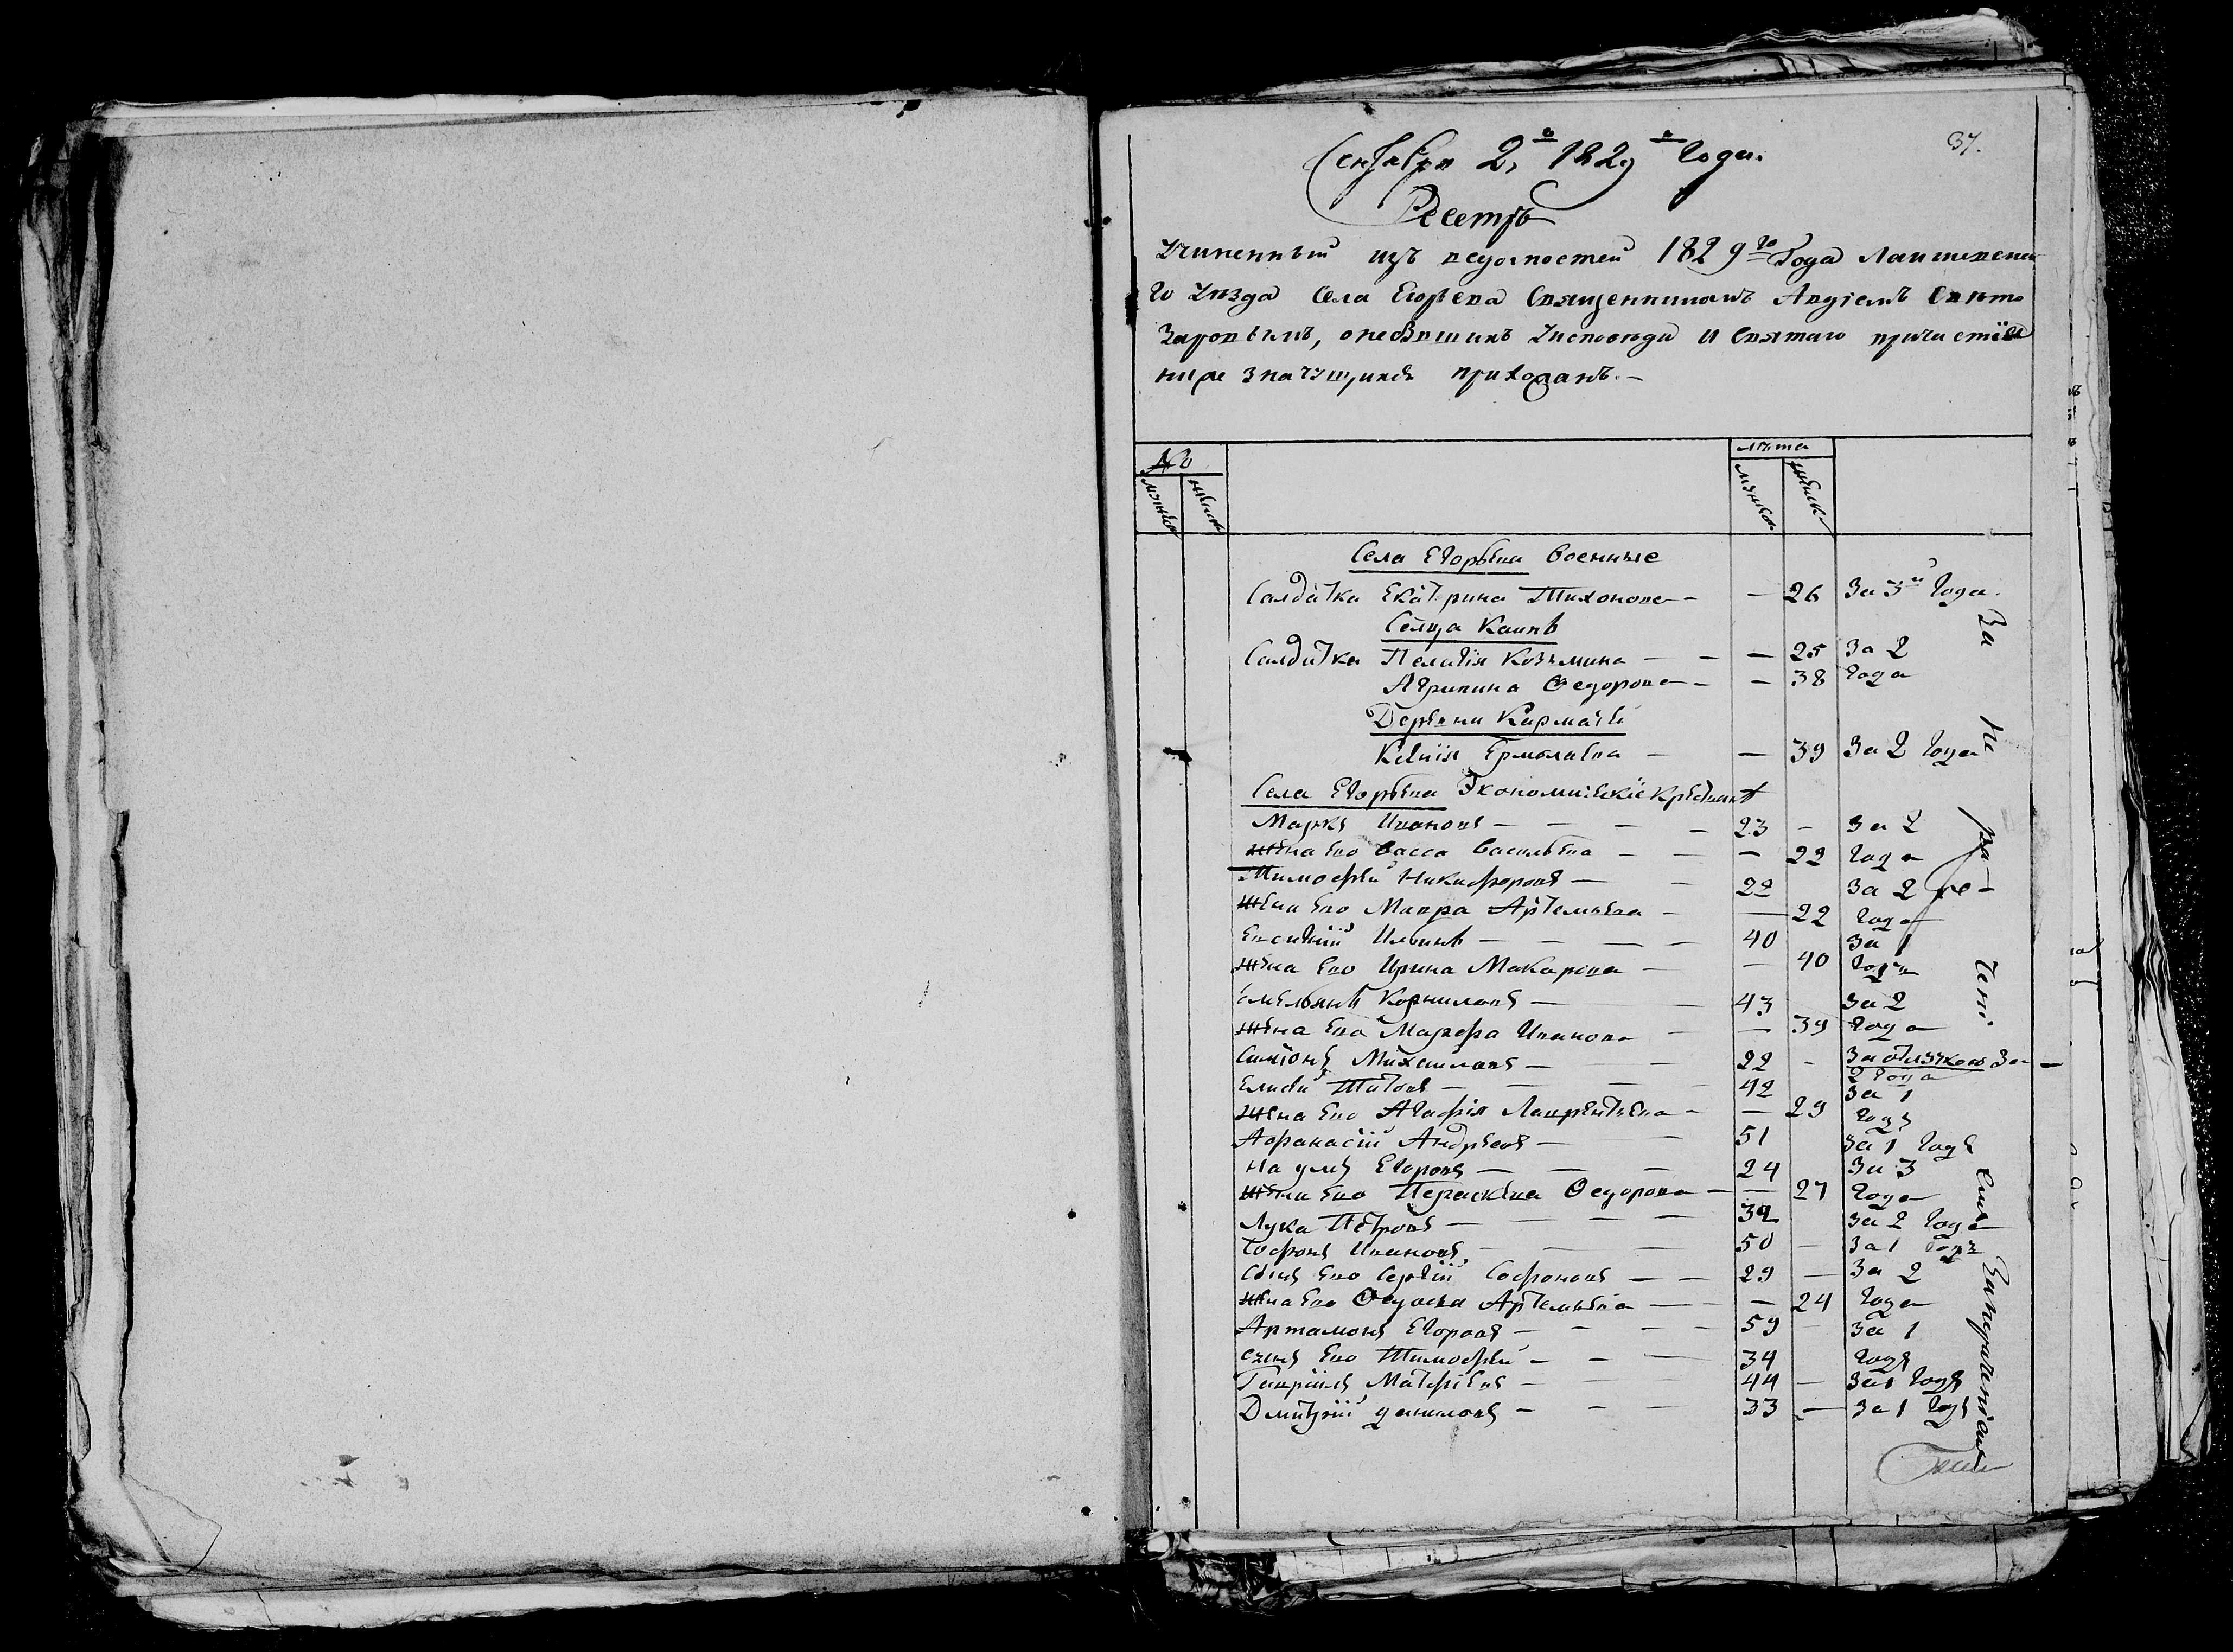 37.
Сентября 2го 1829го Года.
Реестръ
Учиненный изъ ведомостей 1829го Года Лаишевска
го Уезда Села Егорьева Священникомъ Авдіемъ Свето
Заровымъ, о небывшихъ Уисповѣди и Святаго причастія
ниже значущихся прихожанъ.
№ лѣта
мужеск женск мужеск женск
Села Егорьева военные
Салдатка Екатерина Тихонова — — 26 За 3и Года.
Селца Каипъ
Салдатка Пелагія Козьмина — — — 25 За 2
Агрипина Ѳедорова — — 38 Года
Деревни Кармачи
Ксенія Ермолаева — — 39 За 2 Года
Села Егорьева Экономическіе Крестьяне
Маркъ Ивановъ — — — — 23 — За 2
жена Ево Васса Васильева — — — 22 Года
Тимофей Никифоровъ — — 22 За 2
Жена Ево Мавра Артемьева — — 22 Года
Евсигній Ильинъ — — — — 40 За 1
Жена Ево Ирина Макарова — — 40 Годъ
Емельянъ Корниловъ — — 43 За 2
Жена Ево Марфа Иванова — — 39 Года
Симіонъ Михаиловъ — — — 22 — За отлучкою За
2 Года
Елисѣй Титовъ — — — — 42 За 1
Жена Ево Агафія Лаврентьева — — 29 Годъ
Афанасій Андреевъ — — 51 За 1 Годъ
Наумъ Егоровъ — — — 24 За 3
Жена Ево Параскева Ѳедорова — — 27 Года
Лука Петровъ — — — — 32 За 2 Года
Софонъ Ивановъ — — — 50 — За 1 Годъ
Сынъ Ево Сергій Софоновъ — — 29 — За 2
Жена Ево Ѳедосья Артемьева — — — 24 Года
Артамонъ Егоровъ — — — — 59 — За 1
сынъ Ево Тимофей — — — 34 Годъ
Гавріилъ Матфѣевъ — — — 44 — За 1 Годъ
Дмитрій Даниловъ — — — 33 — За 1 Годъ
За не ра де ніемъ За нераченіемъ